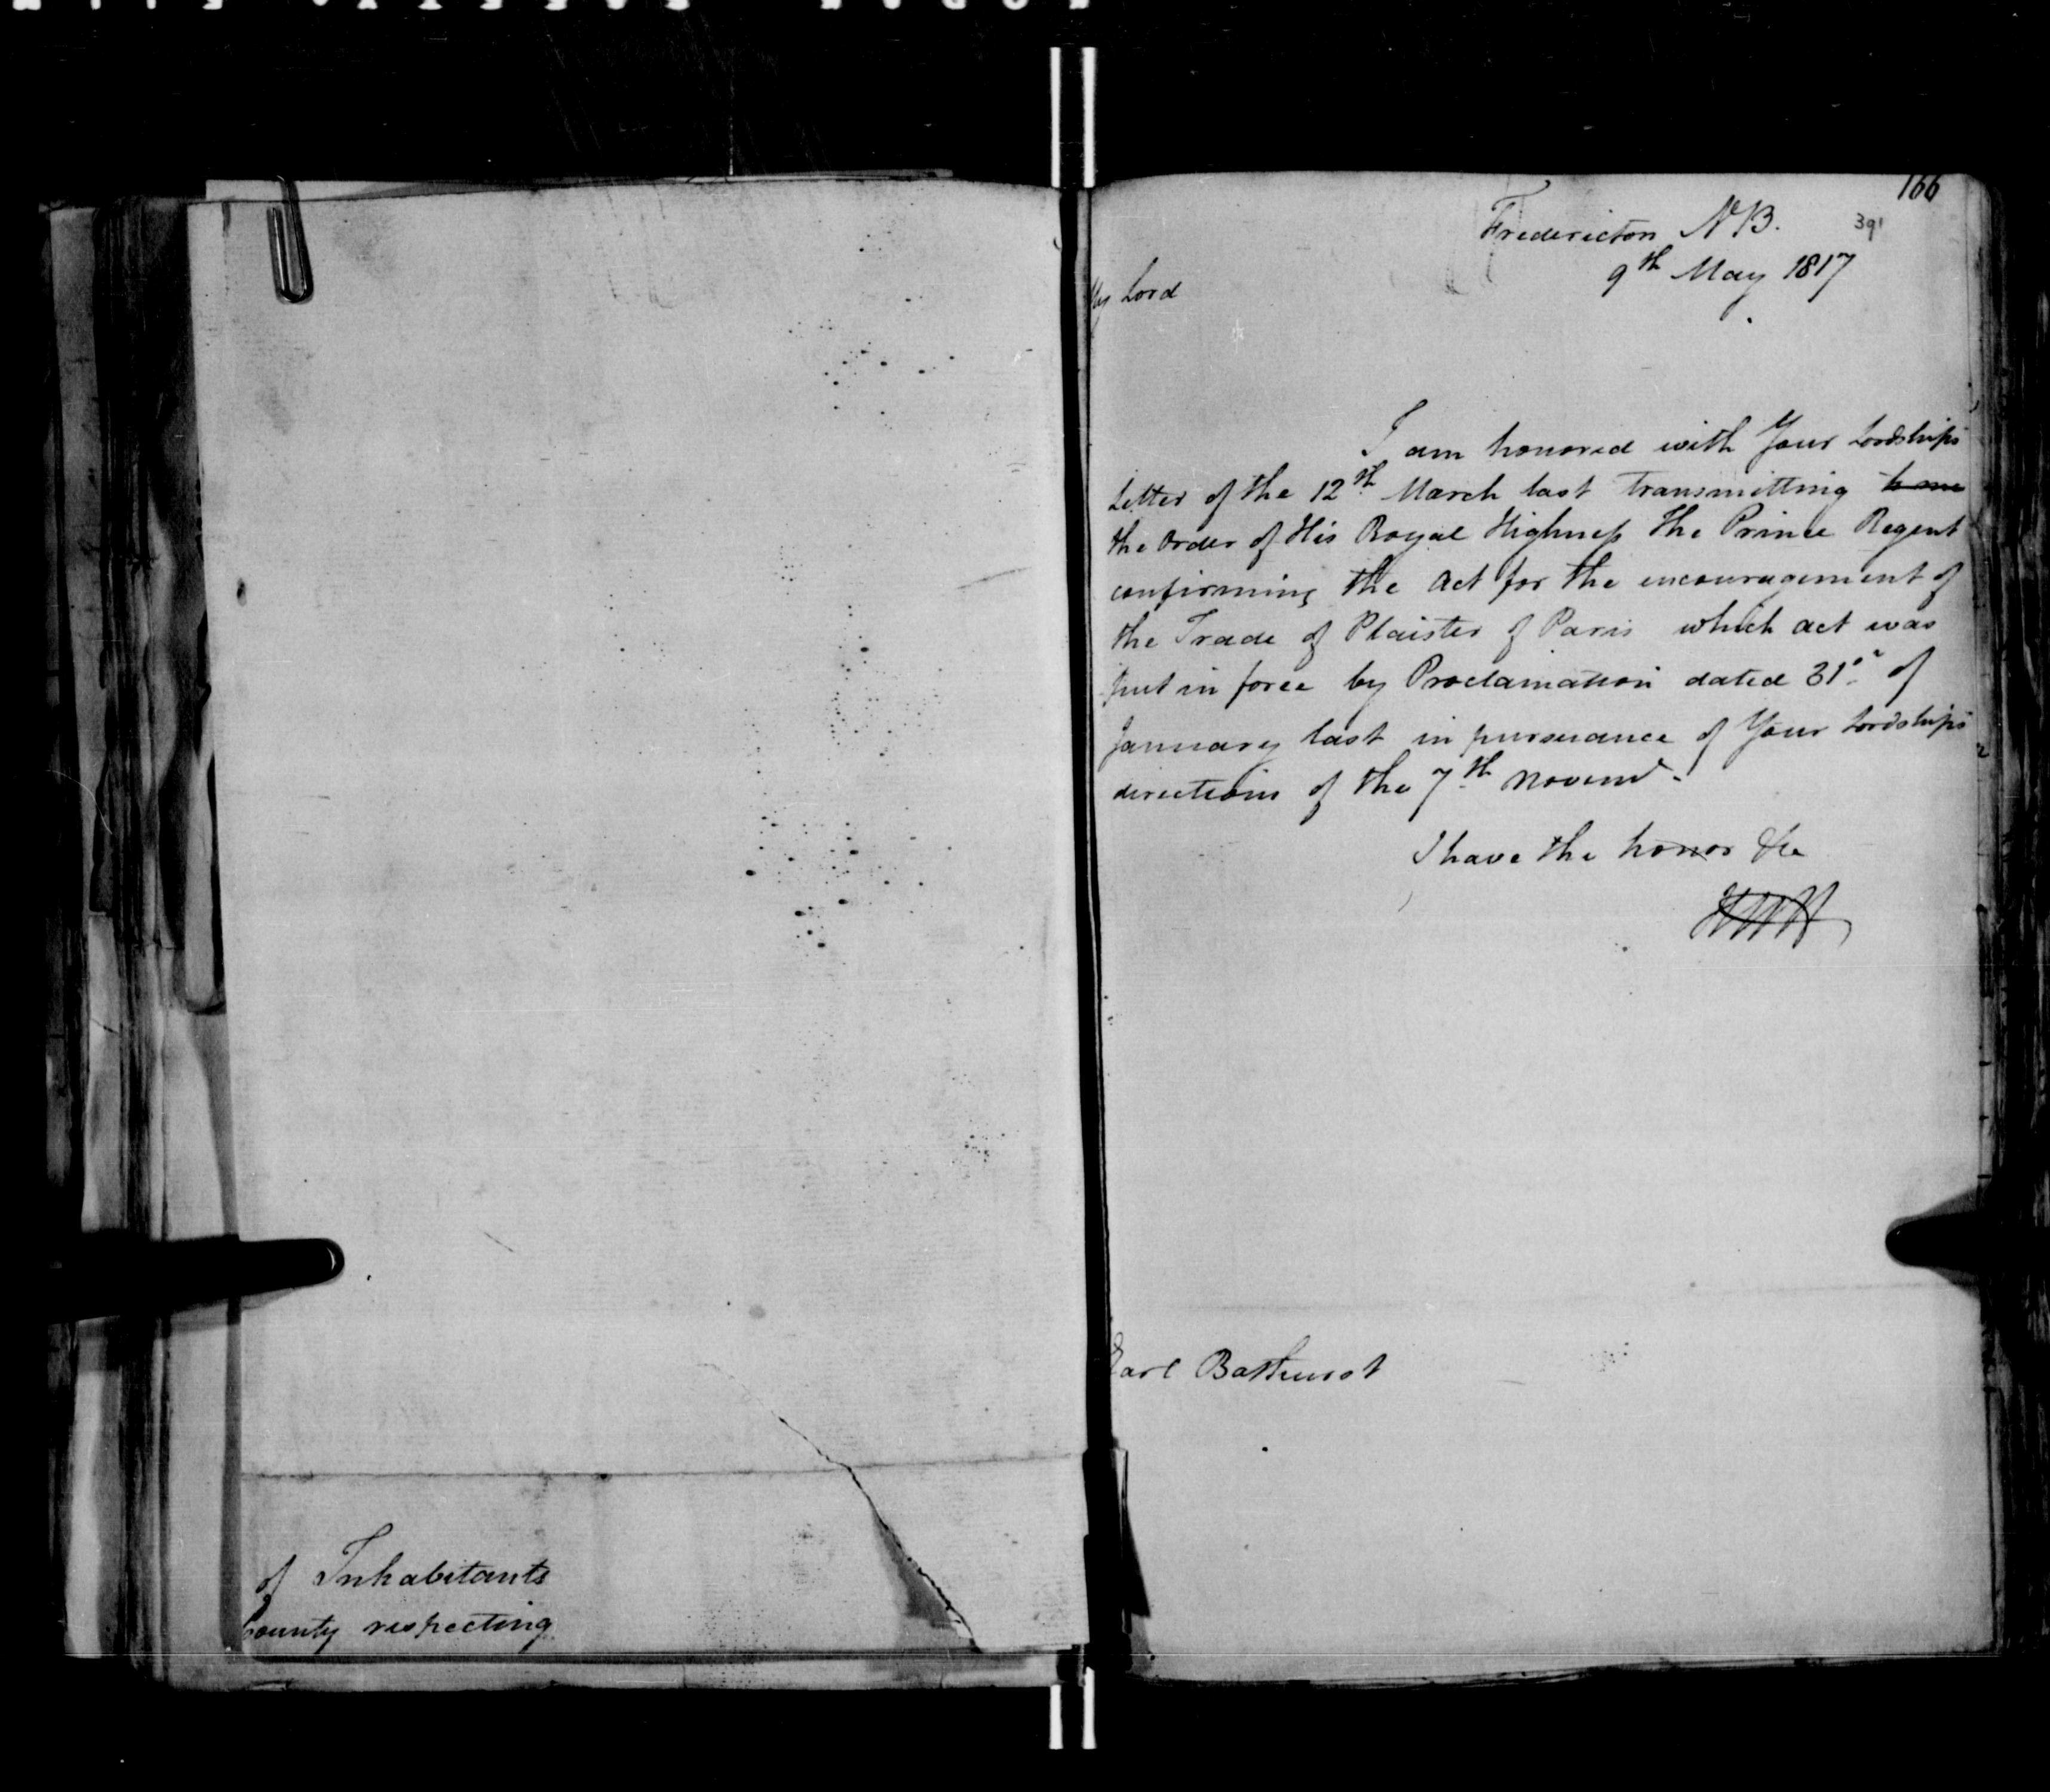 of Inhabitants
County respecting
166
391
Fredericton NB.
9th May 1817
My Lord
I am honored with Your Lordships
Letter of the 12th March last transmitting to me
the Order of His Royal Highness the Prince Regent
confirming the Act for the encouragement of
the Trade of Plaister of Paris which act was
put in force by Proclamation dated 31st of
January last in pursuance of Your Lordships
directions of the 7th Novemr.
I have the honor &c
Earl Bathurst